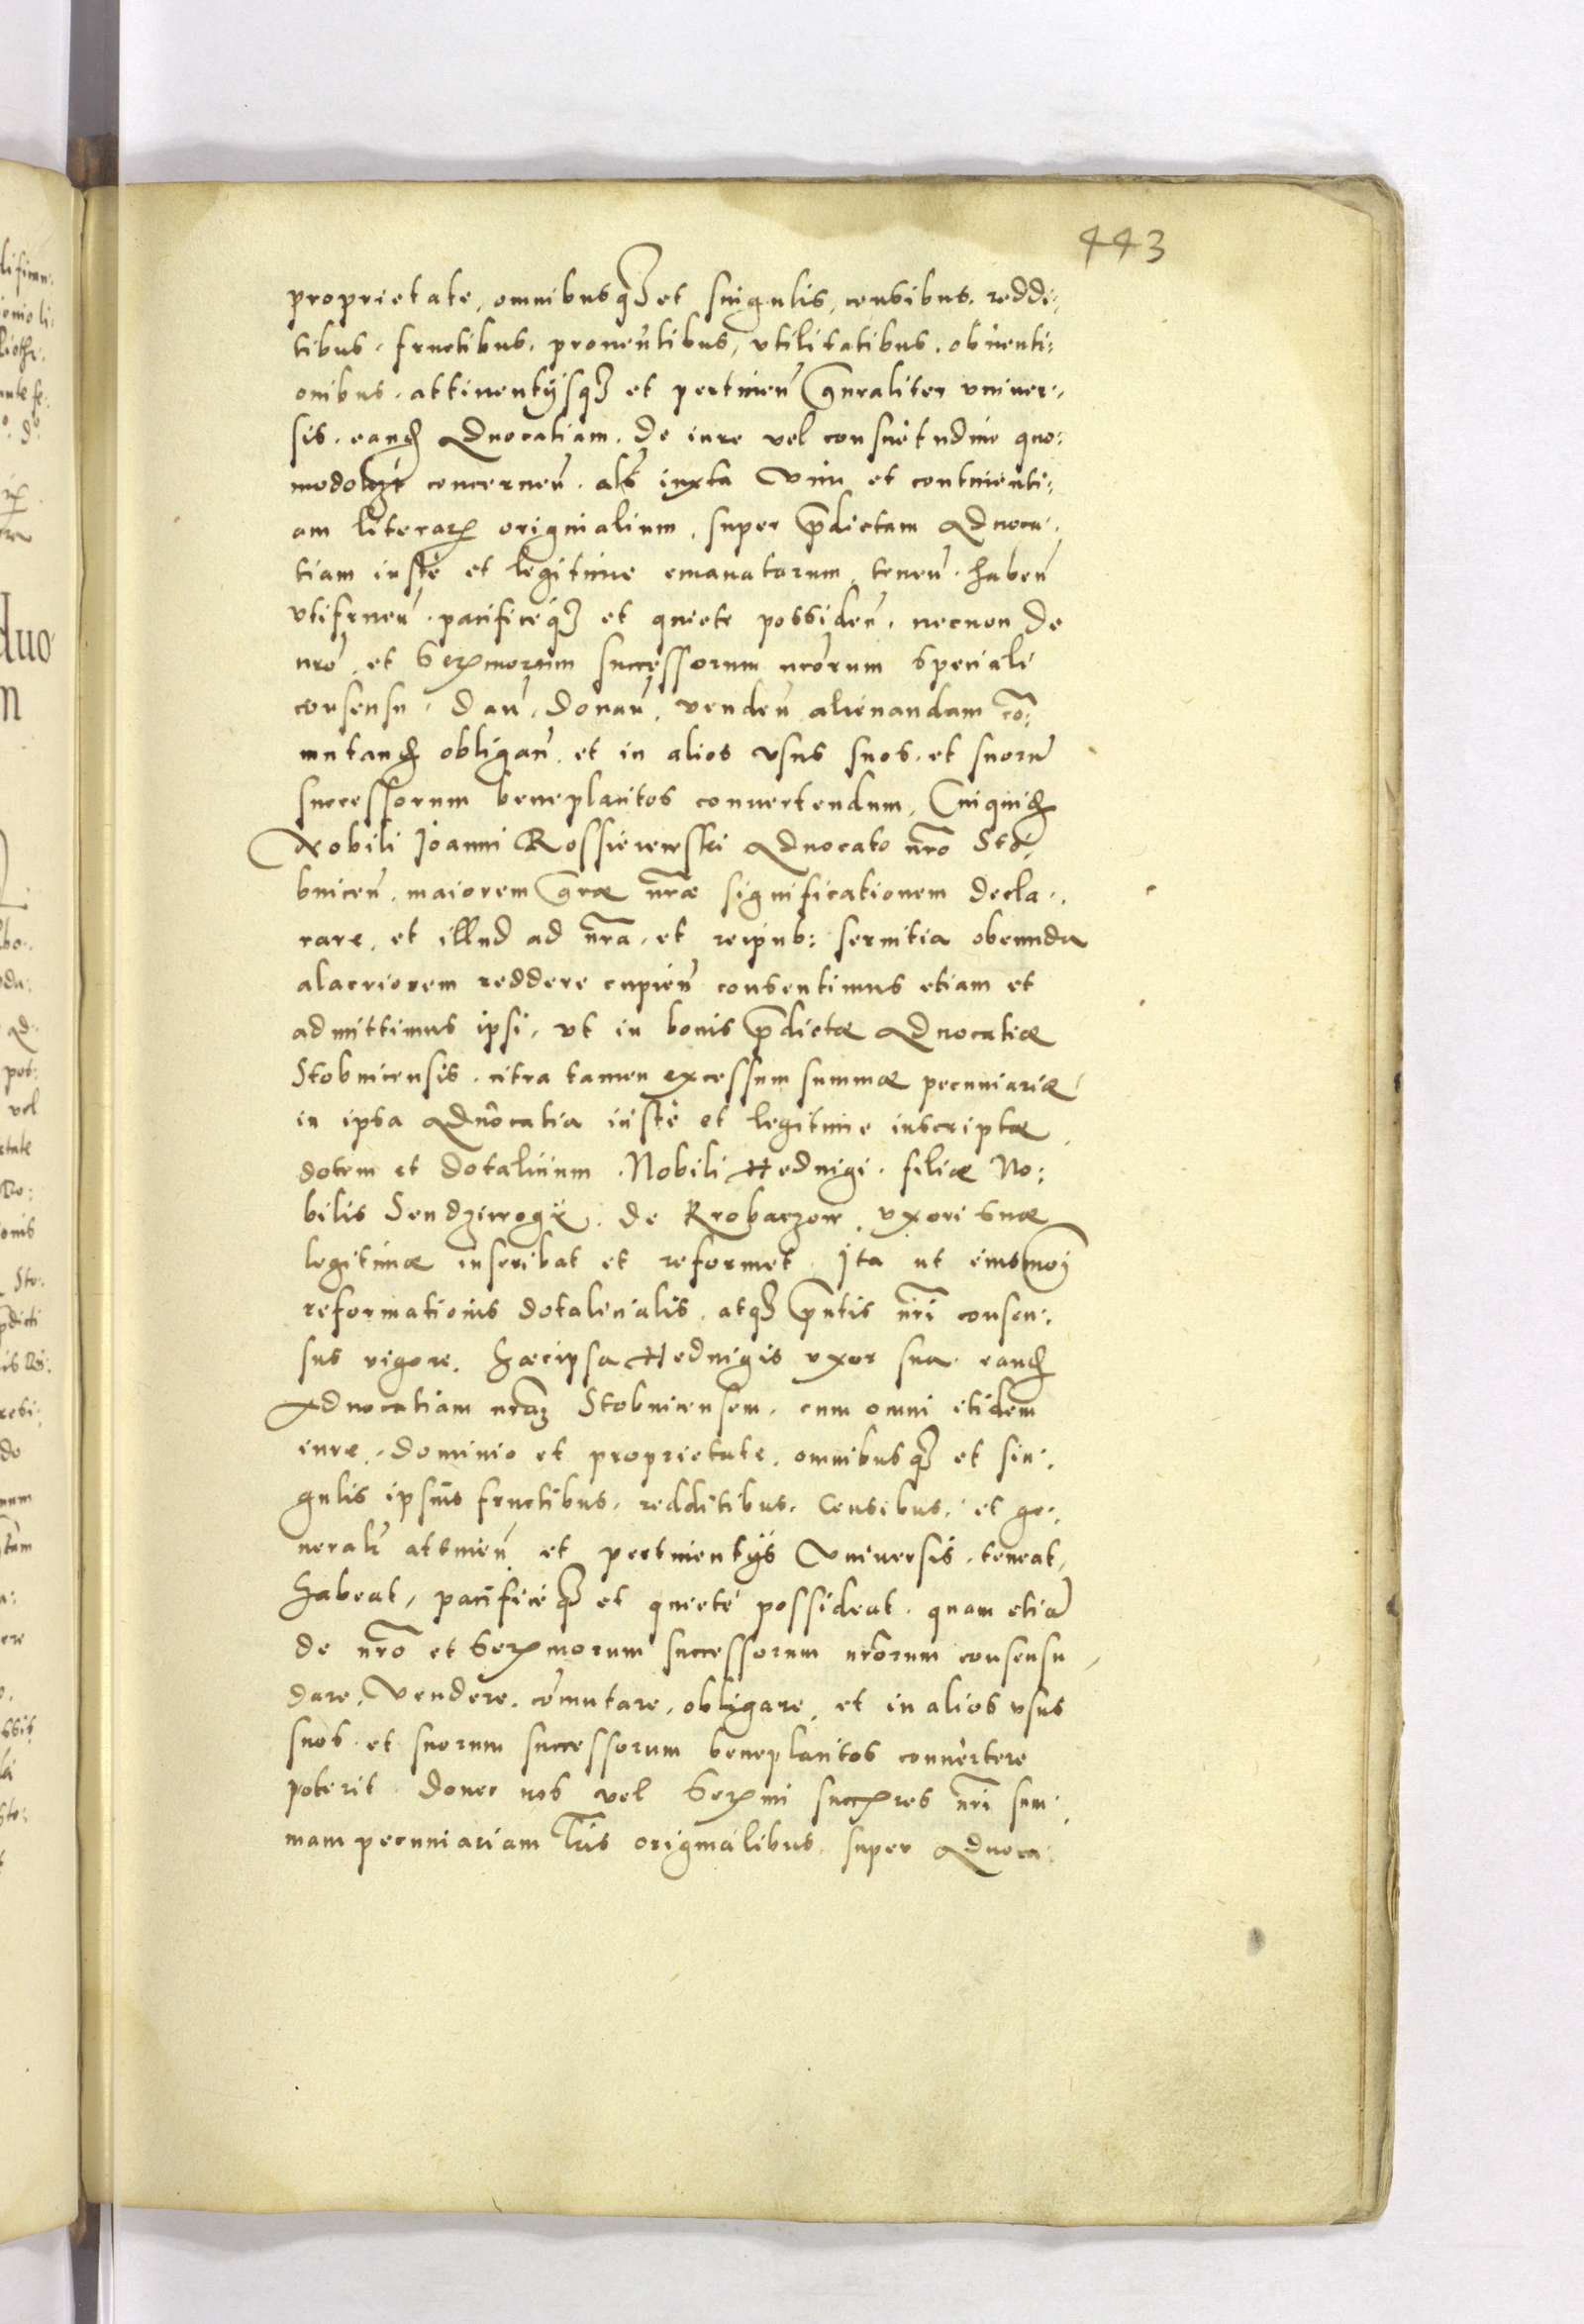 443
proprietate, omnibusq3 et singulis, censibus, reddi:
tibus, fructibus, prouen̄tibus, vtilitatibus, obuenti:
onibus, attinentijsq3 et pertinen̄ gn̄raliter vniuer:
sis, eand. Aduocatiam, de iure vel consuetudine quo:
modolz̄t concernen̄, al̄s iuxta vim et continenti:
am literar. originalium, super p̄dictam Aduoca:
tiam iustè et legitime emanatorum, tenen̄, haben̄
vtifruen̄, pacificeq3 et quiete possiden̄, necnon de
nr̄o et Ser.morum successorum nr̄orum speciali
consensu, dan̄, donan̄, venden̄ alienandam cō:
mutand. obligan̄, et in alios vsus suos, et suorū
successorum beneplacitos conuertendum, Cuiquid.
Nobili Joanni Rossierwski Aduocato nr̄o Sto:
bnicen̄, maiorem gr̄æ nr̄æ significationem decla:
rare, et illud ad nr̄a, et reipub: seruitia obeunda
alacriorem reddere cupien̄ consentimus etiam et
admittimus ipsi, vt in bonis p̄dictæ Aduocatiæ
Stobnicensis, citra tamen excessum summæ pecuniariæ
in ipsa Aduocatia iustè et legitime inscriptæ,
dotem et dotalitium Nobili Heduigi, filiæ No:
bilis Sendziwogij de Krobaczow, vxori suæ
legitimæ inscribat et reformet. Ita ut eiusmo͞i
reformationis dotalicialis, atq3 p̄ntis nr̄i consen:
sus vigore, hæcipsa Heduigis vxor sua, eand.
Aduocatiam nr̄am Stobnicensem, cum omni itidem
iure, dominio et proprietate, omnibusq3 et sin:
gulis ipsius fructibus, redditibus, Censibus, et ge:
neral̄r attinen̄ et pertinentijs Vniuersis, teneat,
habeat, pacificeq3 et quietè possideat, quam etiā
de nr̄o et Ser.morum successorum nr̄orum consensu,
dare, vendere, cōmutare, obligare, et in alios vsus
suos et suorum successorum beneplacitos conuertere
poterit. donec nos vel Ser.mi succ.res nr̄i sum:
mam pecuniariam l̄ris originalibus super Aduoca: